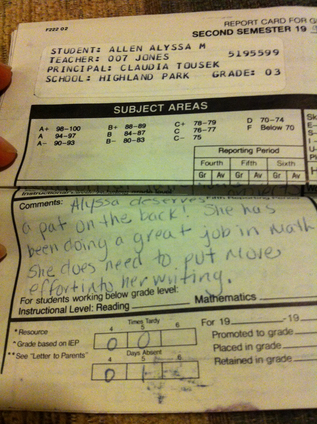 F222 03
REPORT CARD FOR G
SECOND SEMESTER 19
STUDENT: ALLEN ALYSSA M
TEACHER: 007 JONES 5195599
PRINCIPAL: CLAUDIA TOUSEK
SCHOOL: HIGHLAND PARK GRADE: 03
SUBJECT AREAS
A+ 98-100 B+ 88-89 C+ 78-79 D 70-74
A 94-97 B 84-87 C 76-77 F Below 70
A- 90-93 B- 80-83 C- 75
Reporting Period
Fourth Fifth Sixth
Gr Av Gr Av Gr Av
Comments: Alyssa deserves
a pat on the back! She has
been doing a great job in math
She does need to put more
effort into her writing.
For students working below grade level:
Instructional Level: Reading Mathematics
Times Tardy
4 5 6
*Resource
*Grade based on IEP
**See "Letter to Parents"
0 0
Days Absent
4 5 6
0
For 19 -19
Promoted to grade
Placed in grade
Retained in grade